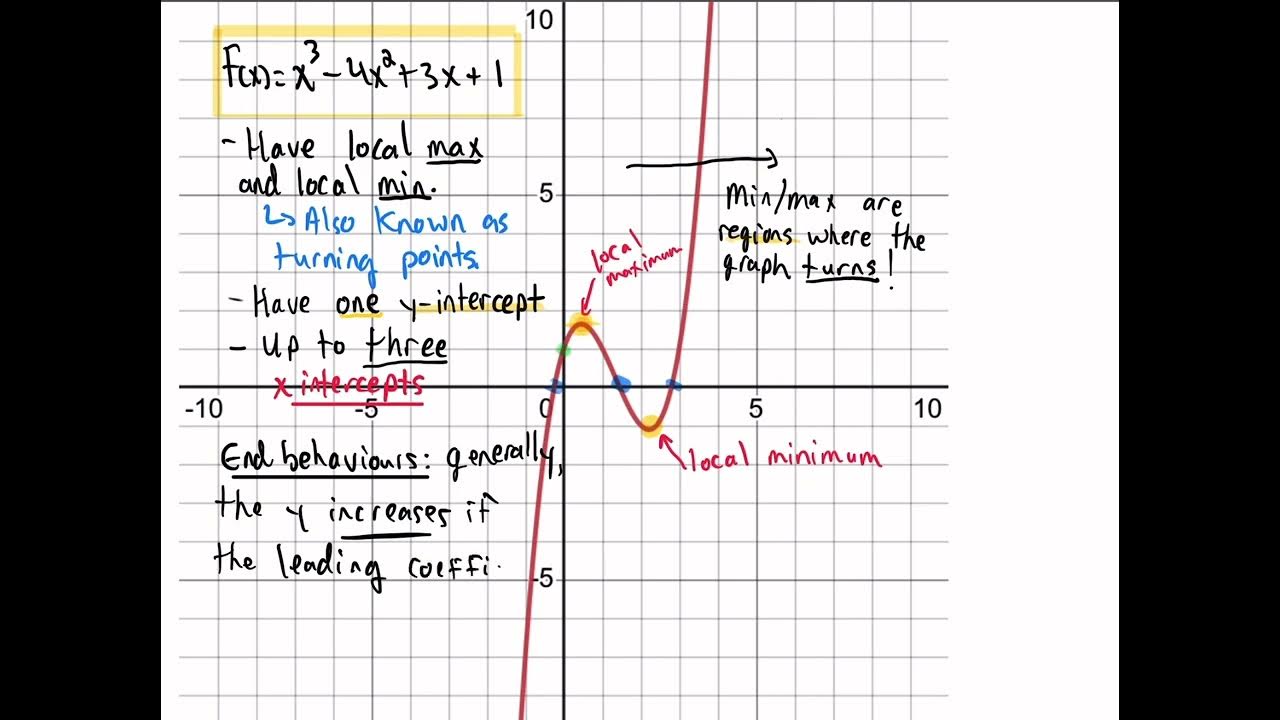 F(x)=x³-4x²+3x+1
- Have local max
and local min.
↳ Also known as
turning points.
- Have one y-intercept
- Up to three
x intercepts
End behaviours: generally,
the y increases if
the leading coeffi.
10
5
-10
-5
0
5
10
-5
local
maximum
Min/max are
regions where the
graph turns!
local minimum